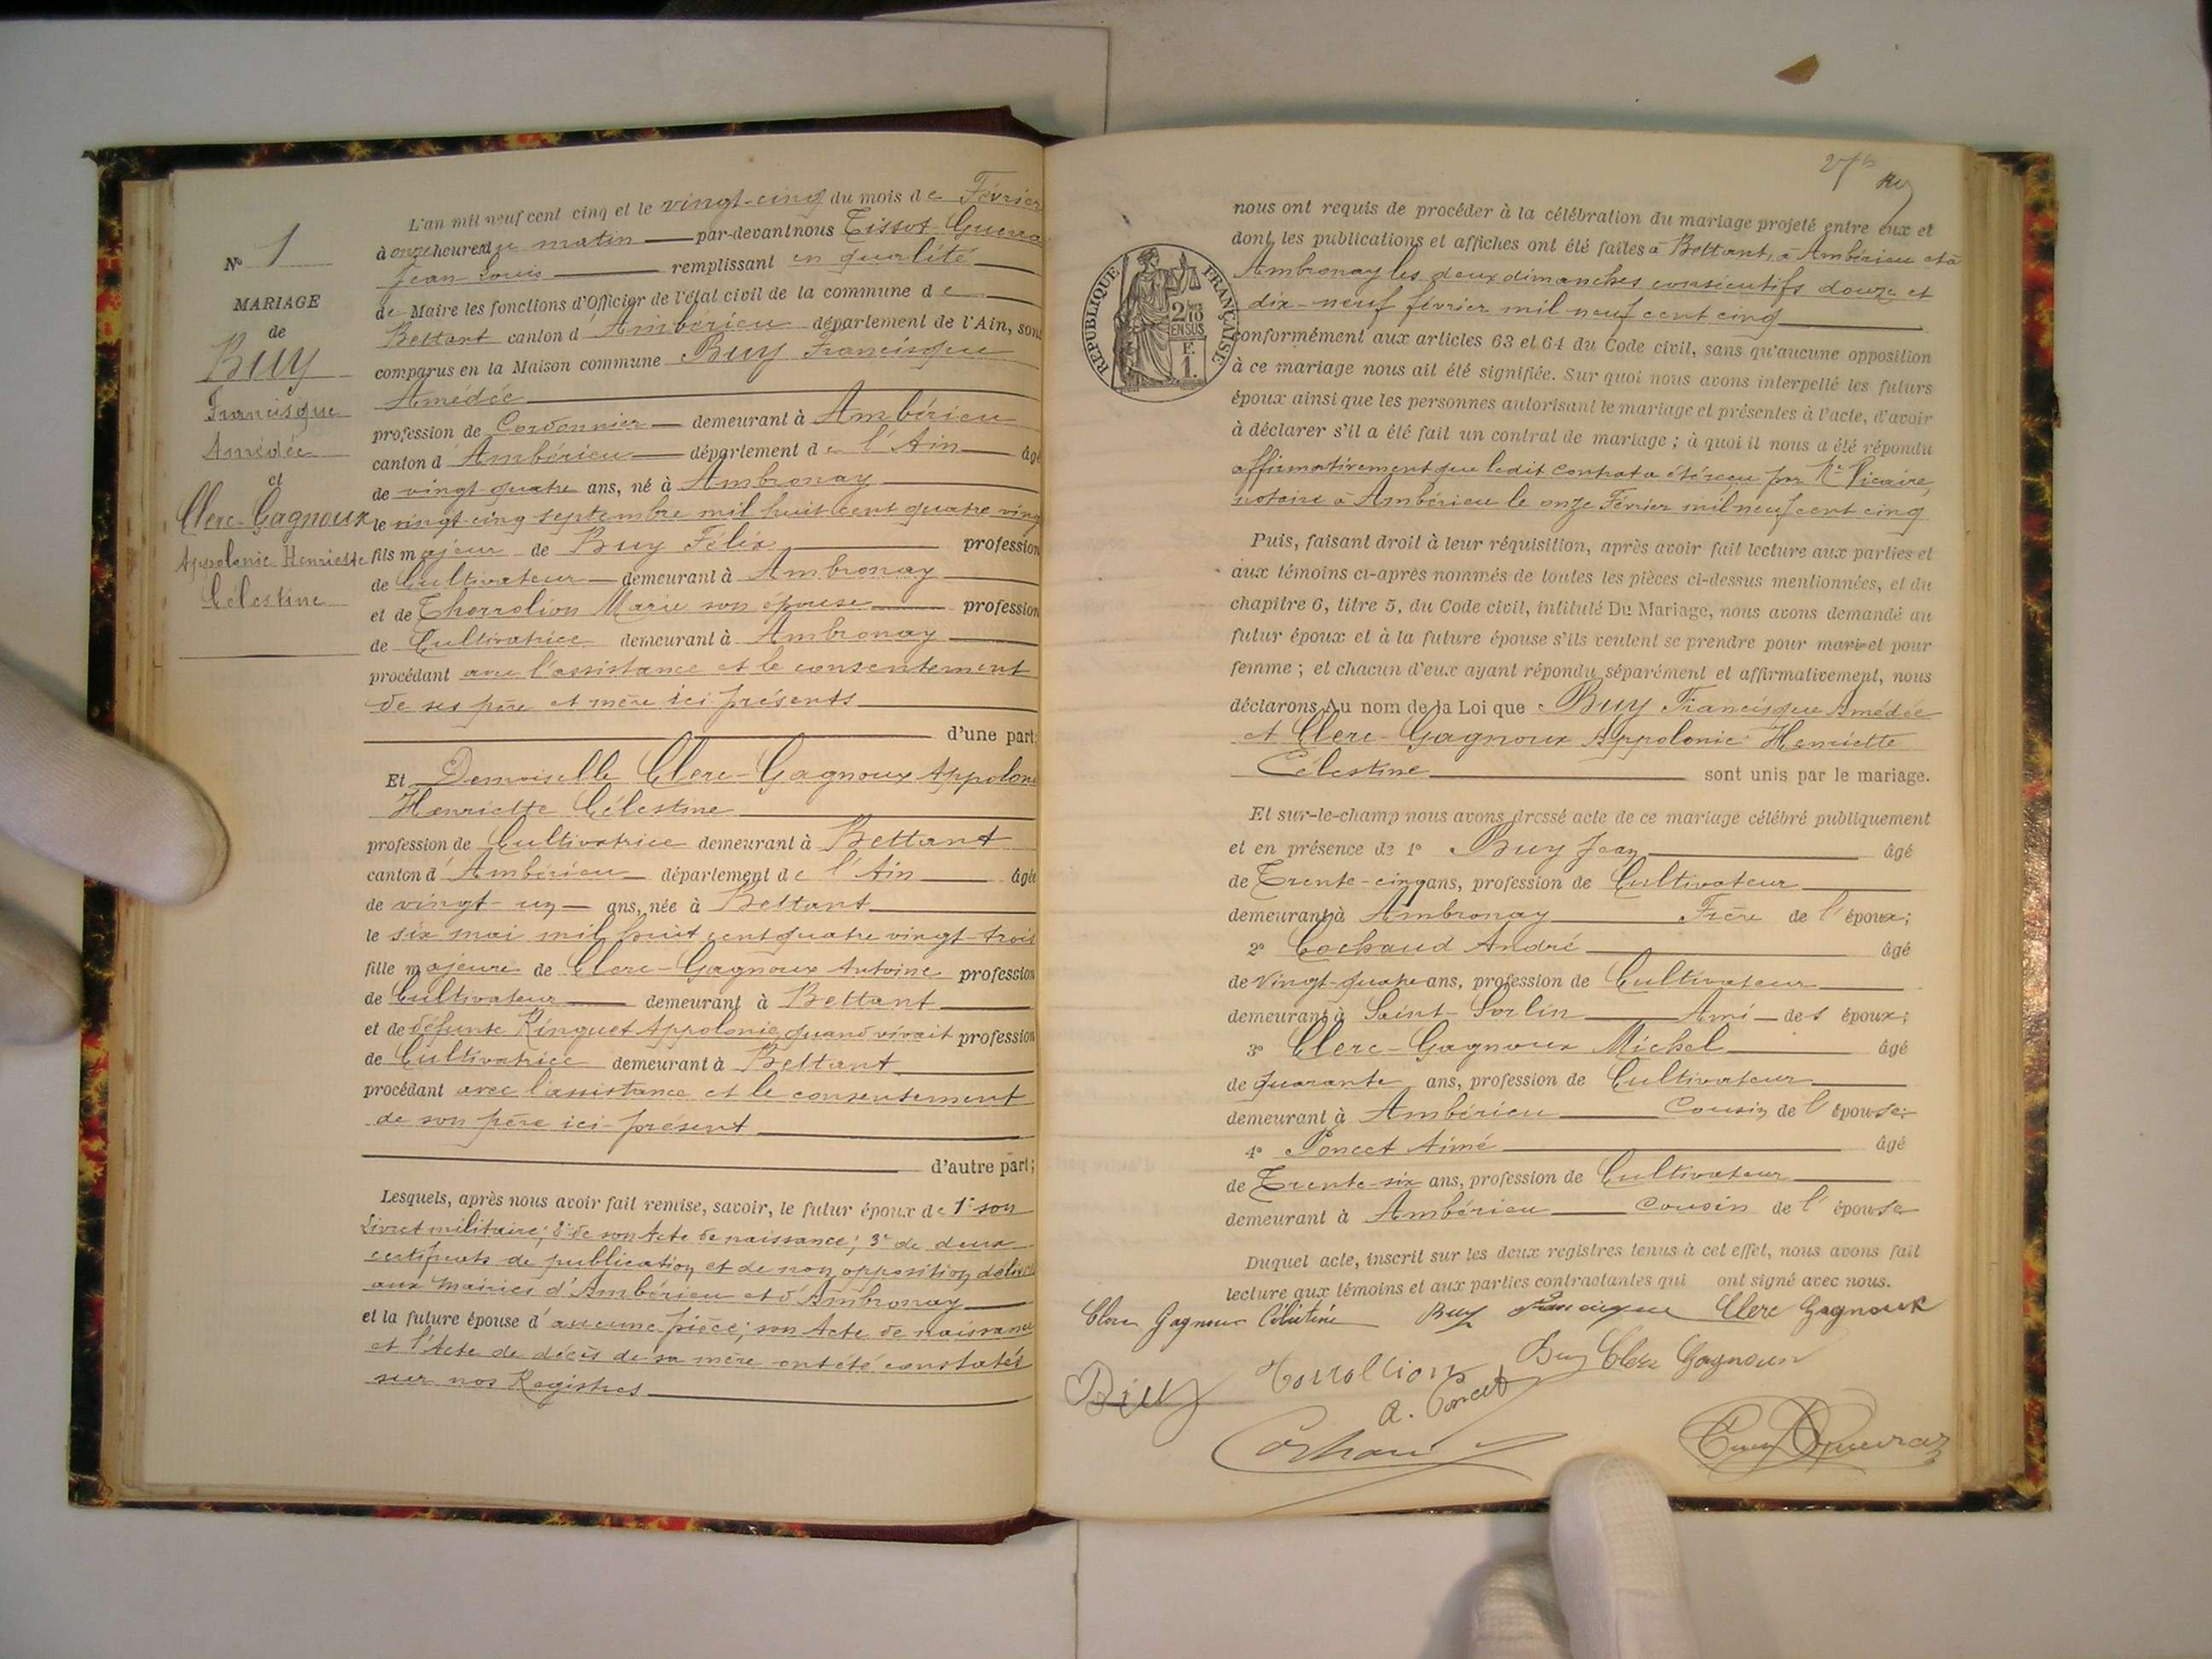 N° 1
MARIAGE
de
Buy
Francisque
Amédée
et
Clerc-Gagnoux
Appolonie Henriette
Célestine
L'an mil neuf cent cinq et le vingt-cinq du mois de Février
à onze heures du matin par-devant nous Tissot Guerraz
Jean Louis remplissant en qualité
de Maire les fonctions d'Officier de l'état civil de la commune de
Bettant canton d'Ambérieu département de l'Ain, sont
comparus en la Maison commune Buy Francisque
Amédée
profession de Cordonnier demeurant à Ambérieu
canton d'Ambérieu département de l'Ain âgé
de vingt-quatre ans, né à Ambronay
le vingt-cinq septembre mil huit cent quatre vingt
fils majeur de Buy Félix profession
de Cultivateur demeurant à Ambronay
et de Thorrolion Marie son épouse profession
de Cultivatrice demeurant à Ambronay
procédant avec l'assistance et le consentement
de ses père et mère ici présents
d'une part;
Et Demoiselle Clerc-Gagnoux Appolonie
Henriette Célestine
profession de Cultivatrice demeurant à Bettant
canton d'Ambérieu département de l'Ain âgée
de vingt-un ans, née à Bettant
le six mai mil huit cent quatre vingt-trois
fille majeure de Clerc-Gagnoux Antoine profession
de Cultivateur demeurant à Bettant
et de défunte Ringuet Appolonie, quand vivait profession
de Cultivatrice demeurant à Bettant
procédant avec l'assistance et le consentement
de son père ici présent
d'autre part;
Lesquels, après nous avoir fait remise, savoir, le futur époux de 1° son
Livret militaire; 2° de son Acte de naissance; 3° de deux
certificats de publication et de non opposition délivrés
aux Mairies d'Ambérieu et d'Ambronay
et la future épouse d'aucune pièce; son Acte de naissance
et l'Acte de décès de sa mère ont été constatés
sur nos Registres
27
nous ont requis de procéder à la célébration du mariage projeté entre eux et
dont les publications et affiches ont été faites à Bettant, à Ambérieu et à
Ambronay les deux dimanches consécutifs douze et
dix-neuf février mil neuf cent cinq
RÉPUBLIQUE FRANÇAISE
2/10 EN SUS
F. 1.
conformément aux articles 63 et 64 du Code civil, sans qu'aucune opposition
à ce mariage nous ait été signifiée. Sur quoi nous avons interpellé les futurs
époux ainsi que les personnes autorisant le mariage et présentes à l'acte, d'avoir
à déclarer s'il a été fait un contrat de mariage; à quoi il nous a été répondu
affirmativement que ledit contrat a été reçu par Me Vicaire,
notaire à Ambérieu le onze Février mil neuf cent cinq
Puis, faisant droit à leur réquisition, après avoir fait lecture aux parties et
aux témoins ci-après nommés de toutes les pièces ci-dessus mentionnées, et du
chapitre 6, titre 5, du Code civil, intitulé Du Mariage, nous avons demandé au
futur époux et à la future épouse s'ils veulent se prendre pour mari et pour
femme; et chacun d'eux ayant répondu séparément et affirmativement, nous
déclarons Au nom de la Loi que Buy Francisque Amédée
et Clerc-Gagnoux Appolonie Henriette
Célestine sont unis par le mariage.
Et sur-le-champ nous avons dressé acte de ce mariage célébré publiquement
et en présence de 1° Buy Jean âgé
de Trente-cinq ans, profession de Cultivateur
demeurant à Ambronay Frère de l'époux;
2° Cochaud André âgé
de Vingt-quatre ans, profession de Cultivateur
demeurant à Saint-Sorlin Ami des époux;
3° Clerc-Gagnoux Michel âgé
de quarante ans, profession de Cultivateur
demeurant à Ambérieu Cousin de l'épouse;
4° Poncet Aimé âgé
de Trente-six ans, profession de Cultivateur
demeurant à Ambérieu Cousin de l'épouse
Duquel acte, inscrit sur les deux registres tenus à cet effet, nous avons fait
lecture aux témoins et aux parties contractantes qui ont signé avec nous.
Clerc Gagnoux Célestine Buy Francisque Clerc Gagnoux
Buy Torrollion Buy Clerc Gagnoux
A. Poncet
Cochaud